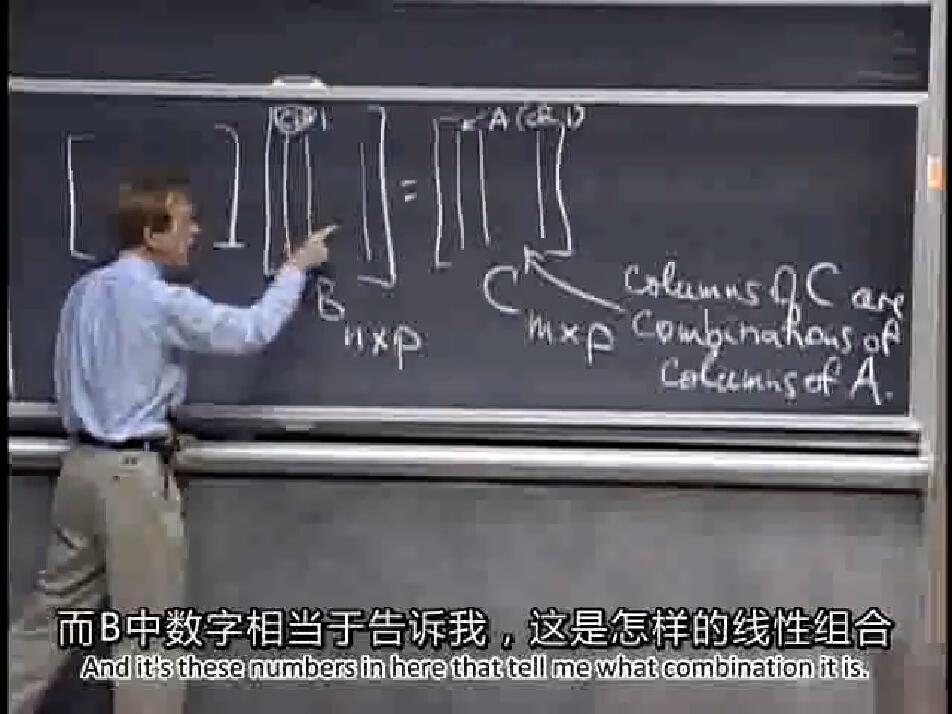 col 1
A (col 1)
=
B
n×p
C
m×p
Columns of C are
Combinations of
Columns of A.
而B中数字相当于告诉我，这是怎样的线性组合
And it's these numbers in here that tell me what combination it is.